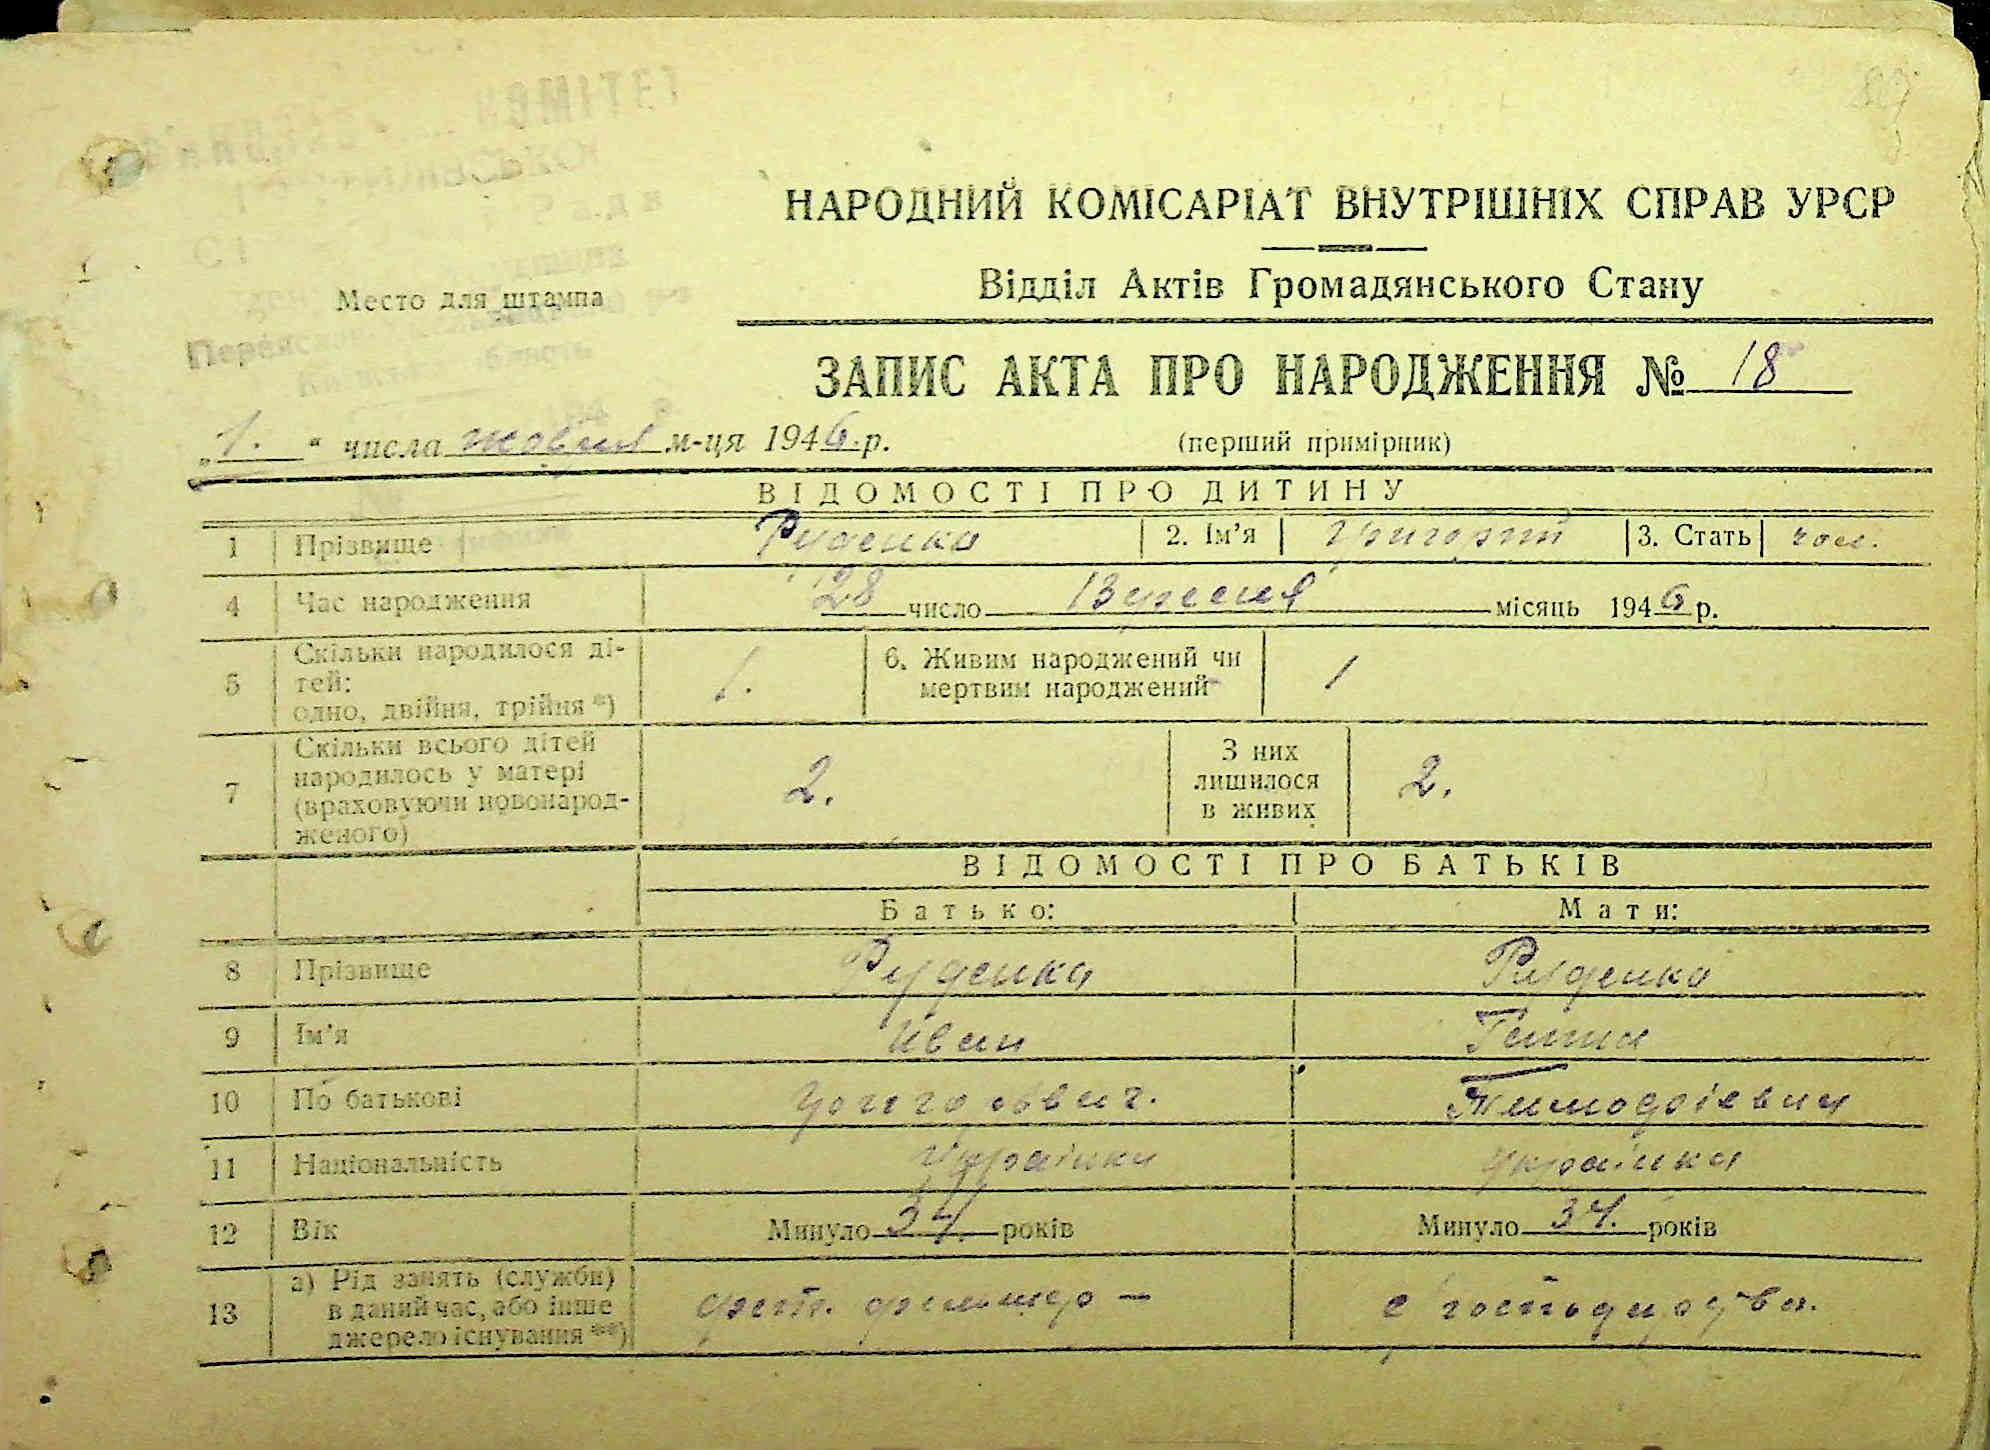 НАРОДНИЙ КОМІСАРІАТ ВНУТРІШНІХ СПРАВ УРСР
Відділ Актів Громадянського Стану
Место для штампа
ЗАПИС АКТА ПРО НАРОДЖЕННЯ № 18
„1.“ числа жовтня м-ця 1946 р. (перший примірник)
ВІДОМОСТІ ПРО ДИТИНУ
1 Прізвище Руденко 2. Ім'я Григорий 3. Стать чол.
4 Час народження 28 число Вересня місяць 1946 р.
5 Скільки народилося ді-
тей:
одно, двійня, трійня *) 1. 6. Живим народжений чи
мертвим народжений 1
7 Скільки всього дітей
народилось у матері
(враховуючи новонарод-
женого) 2. З них
лишилося
в живих 2.
ВІДОМОСТІ ПРО БАТЬКІВ
Батько: Мати:
8 Прізвище Руденко Руденко
9 Ім'я Иван Ганна
10 По батькові
11 Національність Українка
12 Вік Минуло 34. років Минуло 34. років
13 а) Рід занять (служби)
в даний час, або інше
джерело існування **)